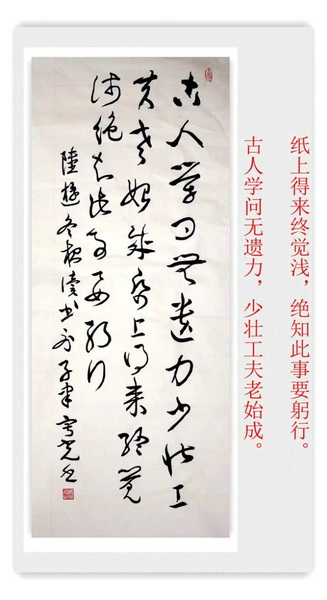 古人学问無遗力少壮工
夫老始成纸上得来终觉
浅绝知此事要躬行
陸游冬夜读书示子聿
古人学问无遗力，少壮工夫老始成。
纸上得来终觉浅，绝知此事要躬行。